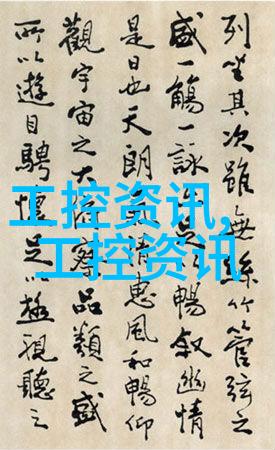 列坐其次雖無絲竹管弦之
盛一觴一詠亦足以暢敘幽情
是日也天朗清惠風和暢仰
觀宇宙之大俯察品類之盛
所以遊目騁懷足以極視聽之
工控资讯,
工控资讯